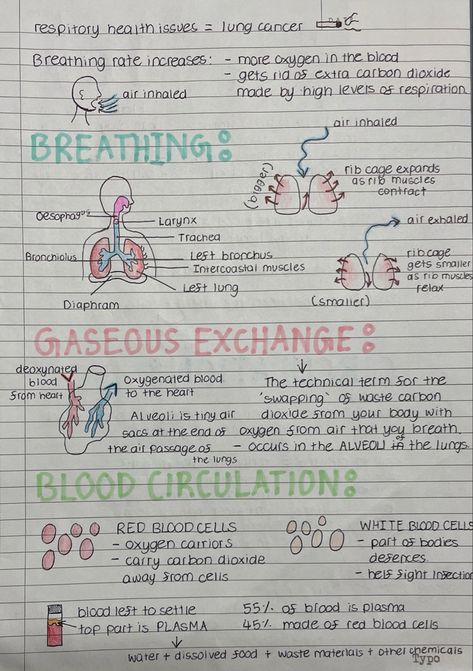 respitory health issues = lung cancer
Breathing rate increases: - more oxygen in the blood
- gets rid of extra carbon dioxide
made by high levels of respiration
air inhaled
BREATHING:
air inhaled
(bigger)
rib cage expands
as rib muscles
contract
Oesophagus
Larynx
Trachea
Bronchiolus
Left bronchus
Intercoastal muscles
Left lung
Diaphram
air exhaled
rib cage
gets smaller
as rib muscles
relax
(smaller)
GASEOUS EXCHANGE:
deoxynated
blood
from heart
Oxygenated blood
to the heart
Alveoli is tiny air
sacs at the end of
the air passage of
the lungs
The technical term for the
'swapping' of waste carbon
dioxide from your body with
oxygen from air that you breath.
- occurs in the ALVEOLI of the lungs
BLOOD CIRCULATION:
RED BLOOD CELLS
- oxygen carriors
- carry carbon dioxide
away from cells
WHITE BLOOD CELLS
- part of bodies
defences
- help fight Insection
blood left to settle
top part is PLASMA
55% of blood is plasma
45% made of red blood cells
water + dissolved food + waste materials + other chemicals
Typo